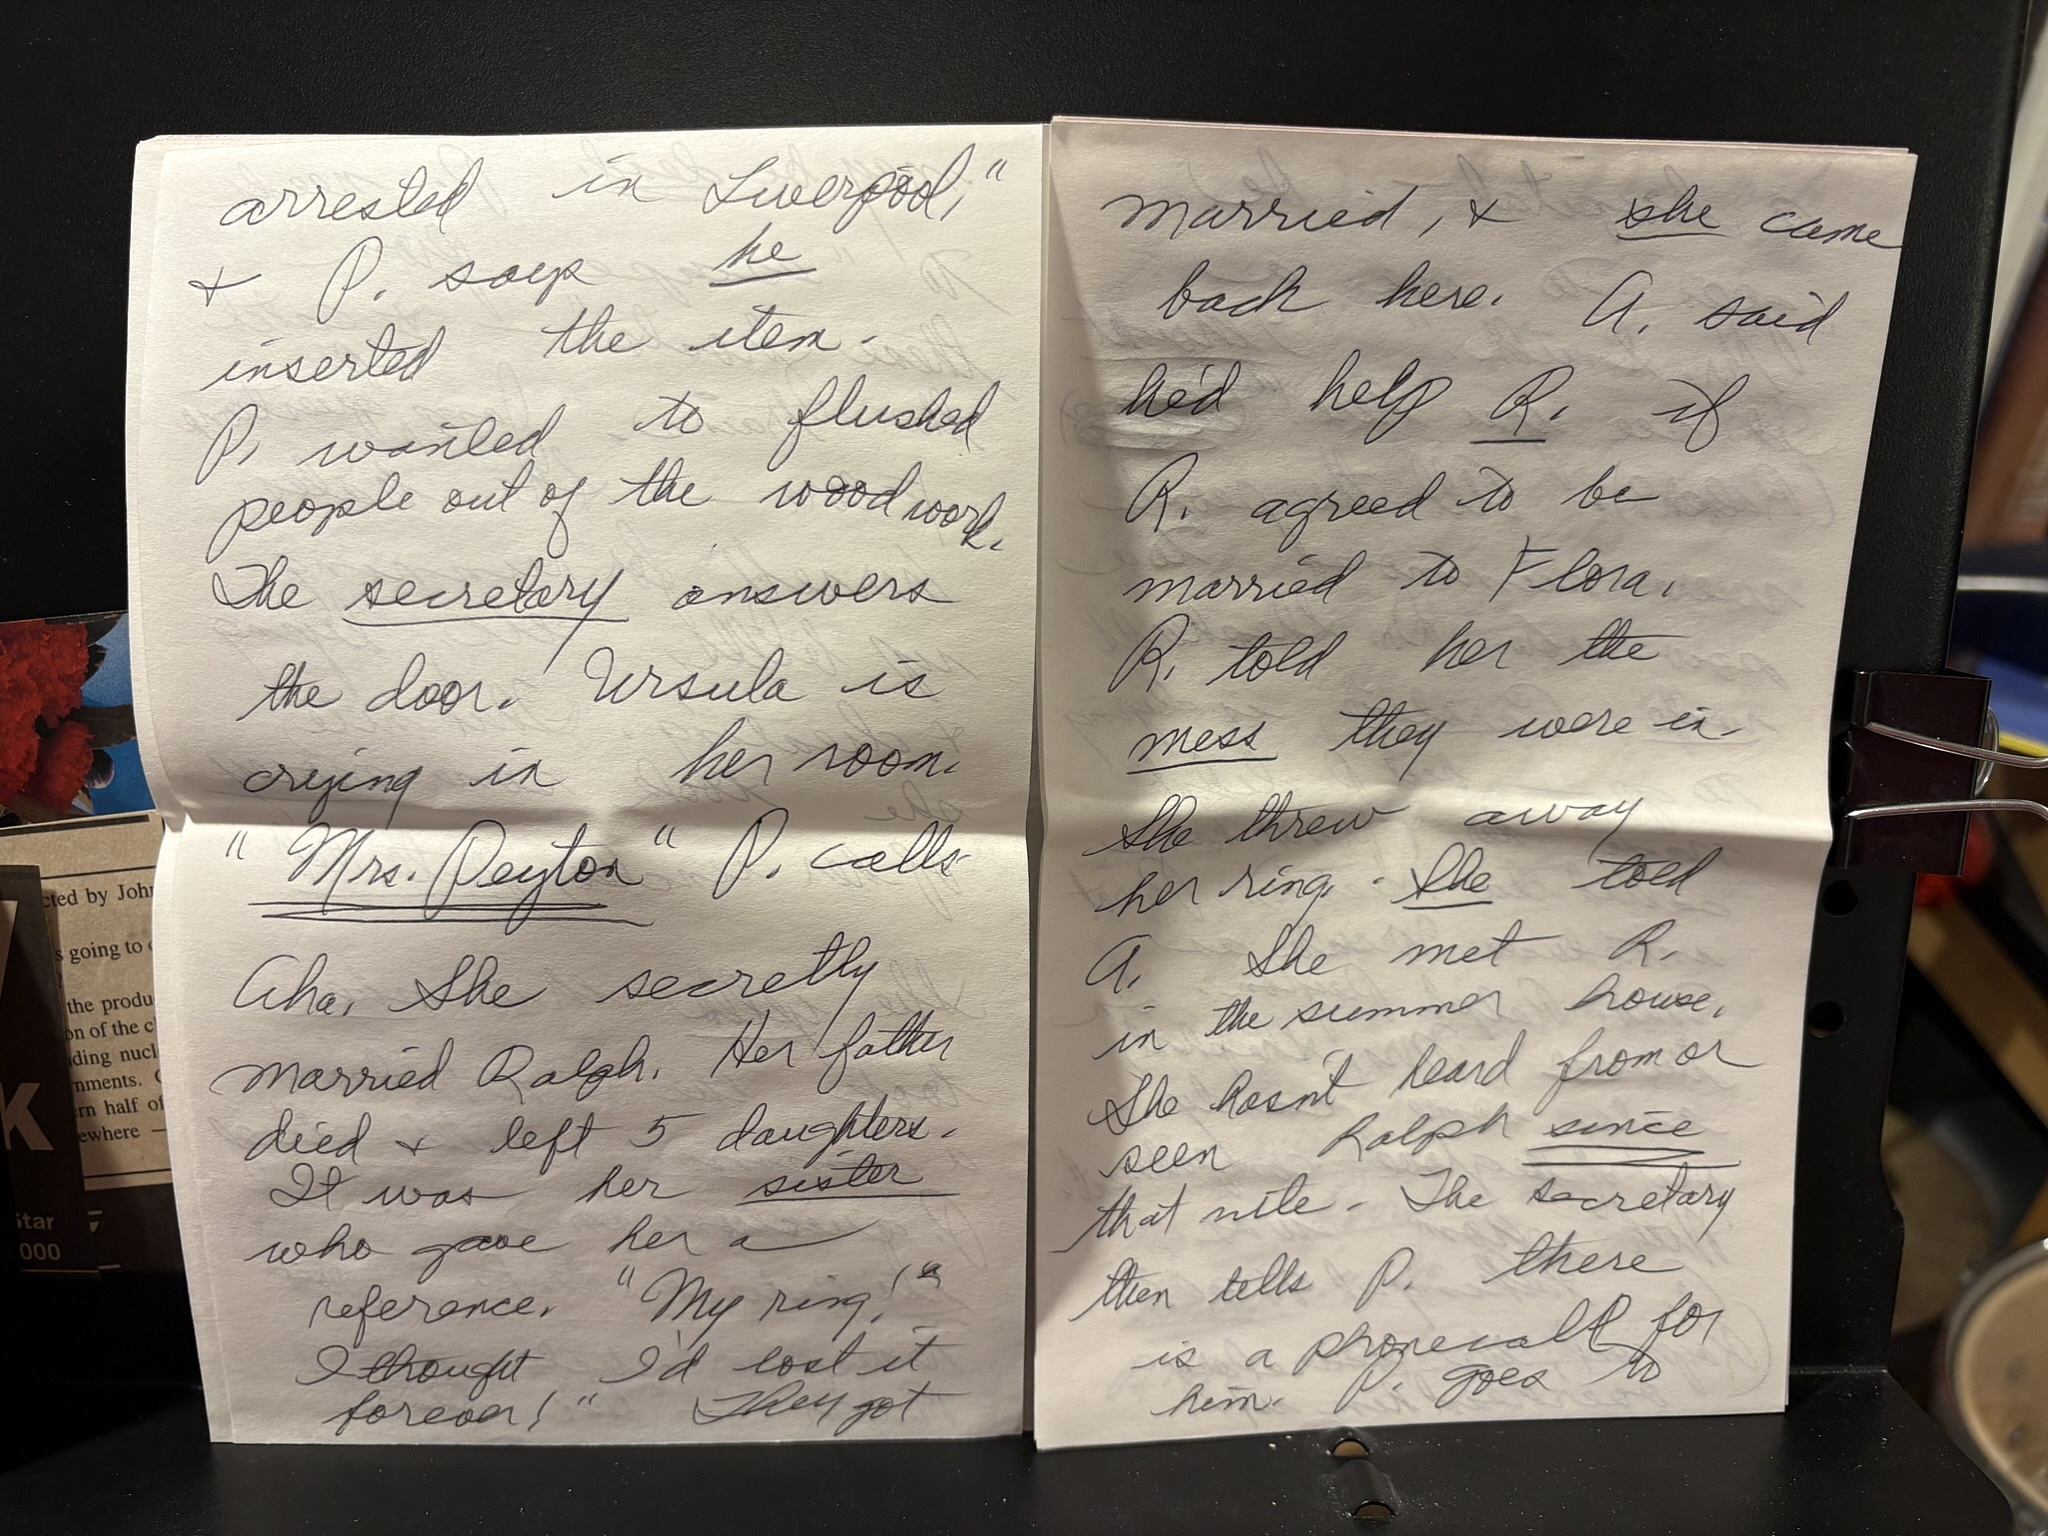 arrested in Liverpool,"
& P. says he
inserted the item.
P. wanted to flushed
people out of the woodwork.
The secretary answers
the door. Ursula is
crying in her room.
"Mrs. Peyton" P. calls.
Aha. She secretly
married Ralph. Her father
died & left 5 daughters.
It was her sister
who gave her a
reference. "My ring!"
I thought I'd lost it
forever!" They got
married, & she came
back here. A. said
he'd help R. if
R. agreed to be
married to Flora.
R. told her the
mess they were in.
She threw away
her ring. She told
A. She met R.
in the summer house.
She hasn't heard from or
seen Ralph since
that nite. The secretary
then tells P. there
is a phonecall for
him. P. goes to
cted by John
s going to
the produ
on of the c
ding nucl
nments.
rn half of
ewhere —
K
Star
000